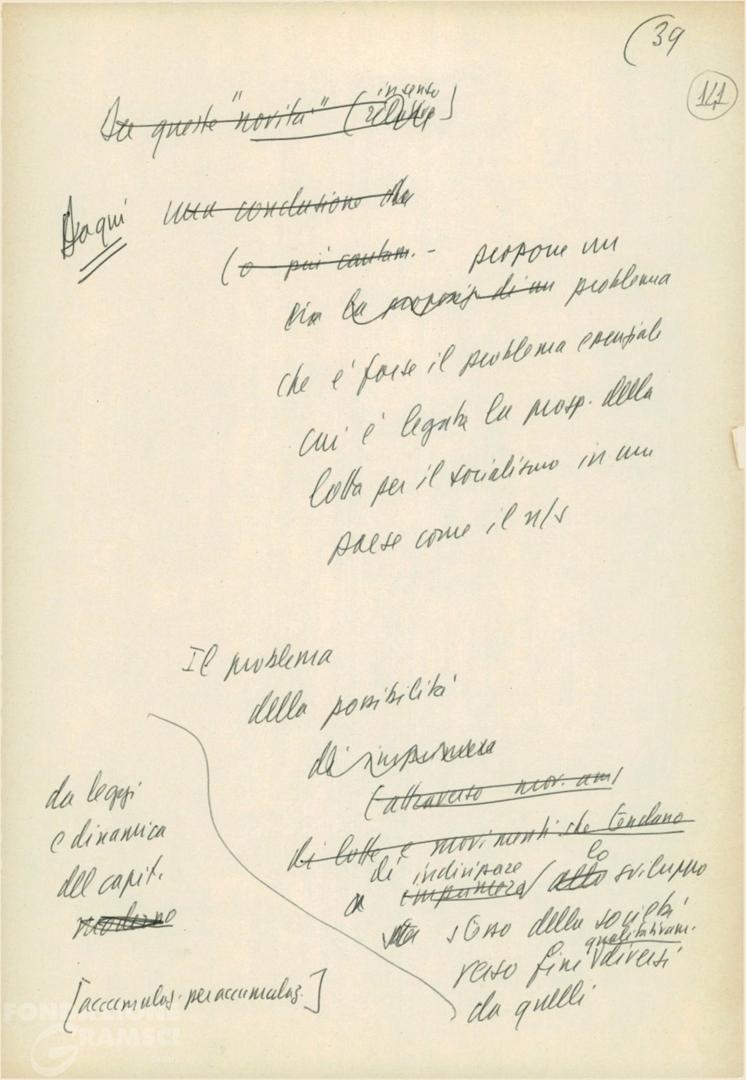 (39
141
in senso
Su queste "novità" (relative)
Da qui una conclusione che
(o più cautam. - propone un
problema
che è forse il problema essenziale
cui è legata la prosp. della
lotta per il socialismo in un
paese come il n/s
Il problema
della possibilità
di imprimere
(attraverso
di lotte e movimenti che tendano
di indirizzare lo
a imprimere / allo sviluppo
stesso della società
qualitativam.
verso fini diversi
da quelli
da leggi
e dinamica
del capit.
moderno
[accumulaz. per accumulaz.]
FONDAZIONE
GRAMSCI